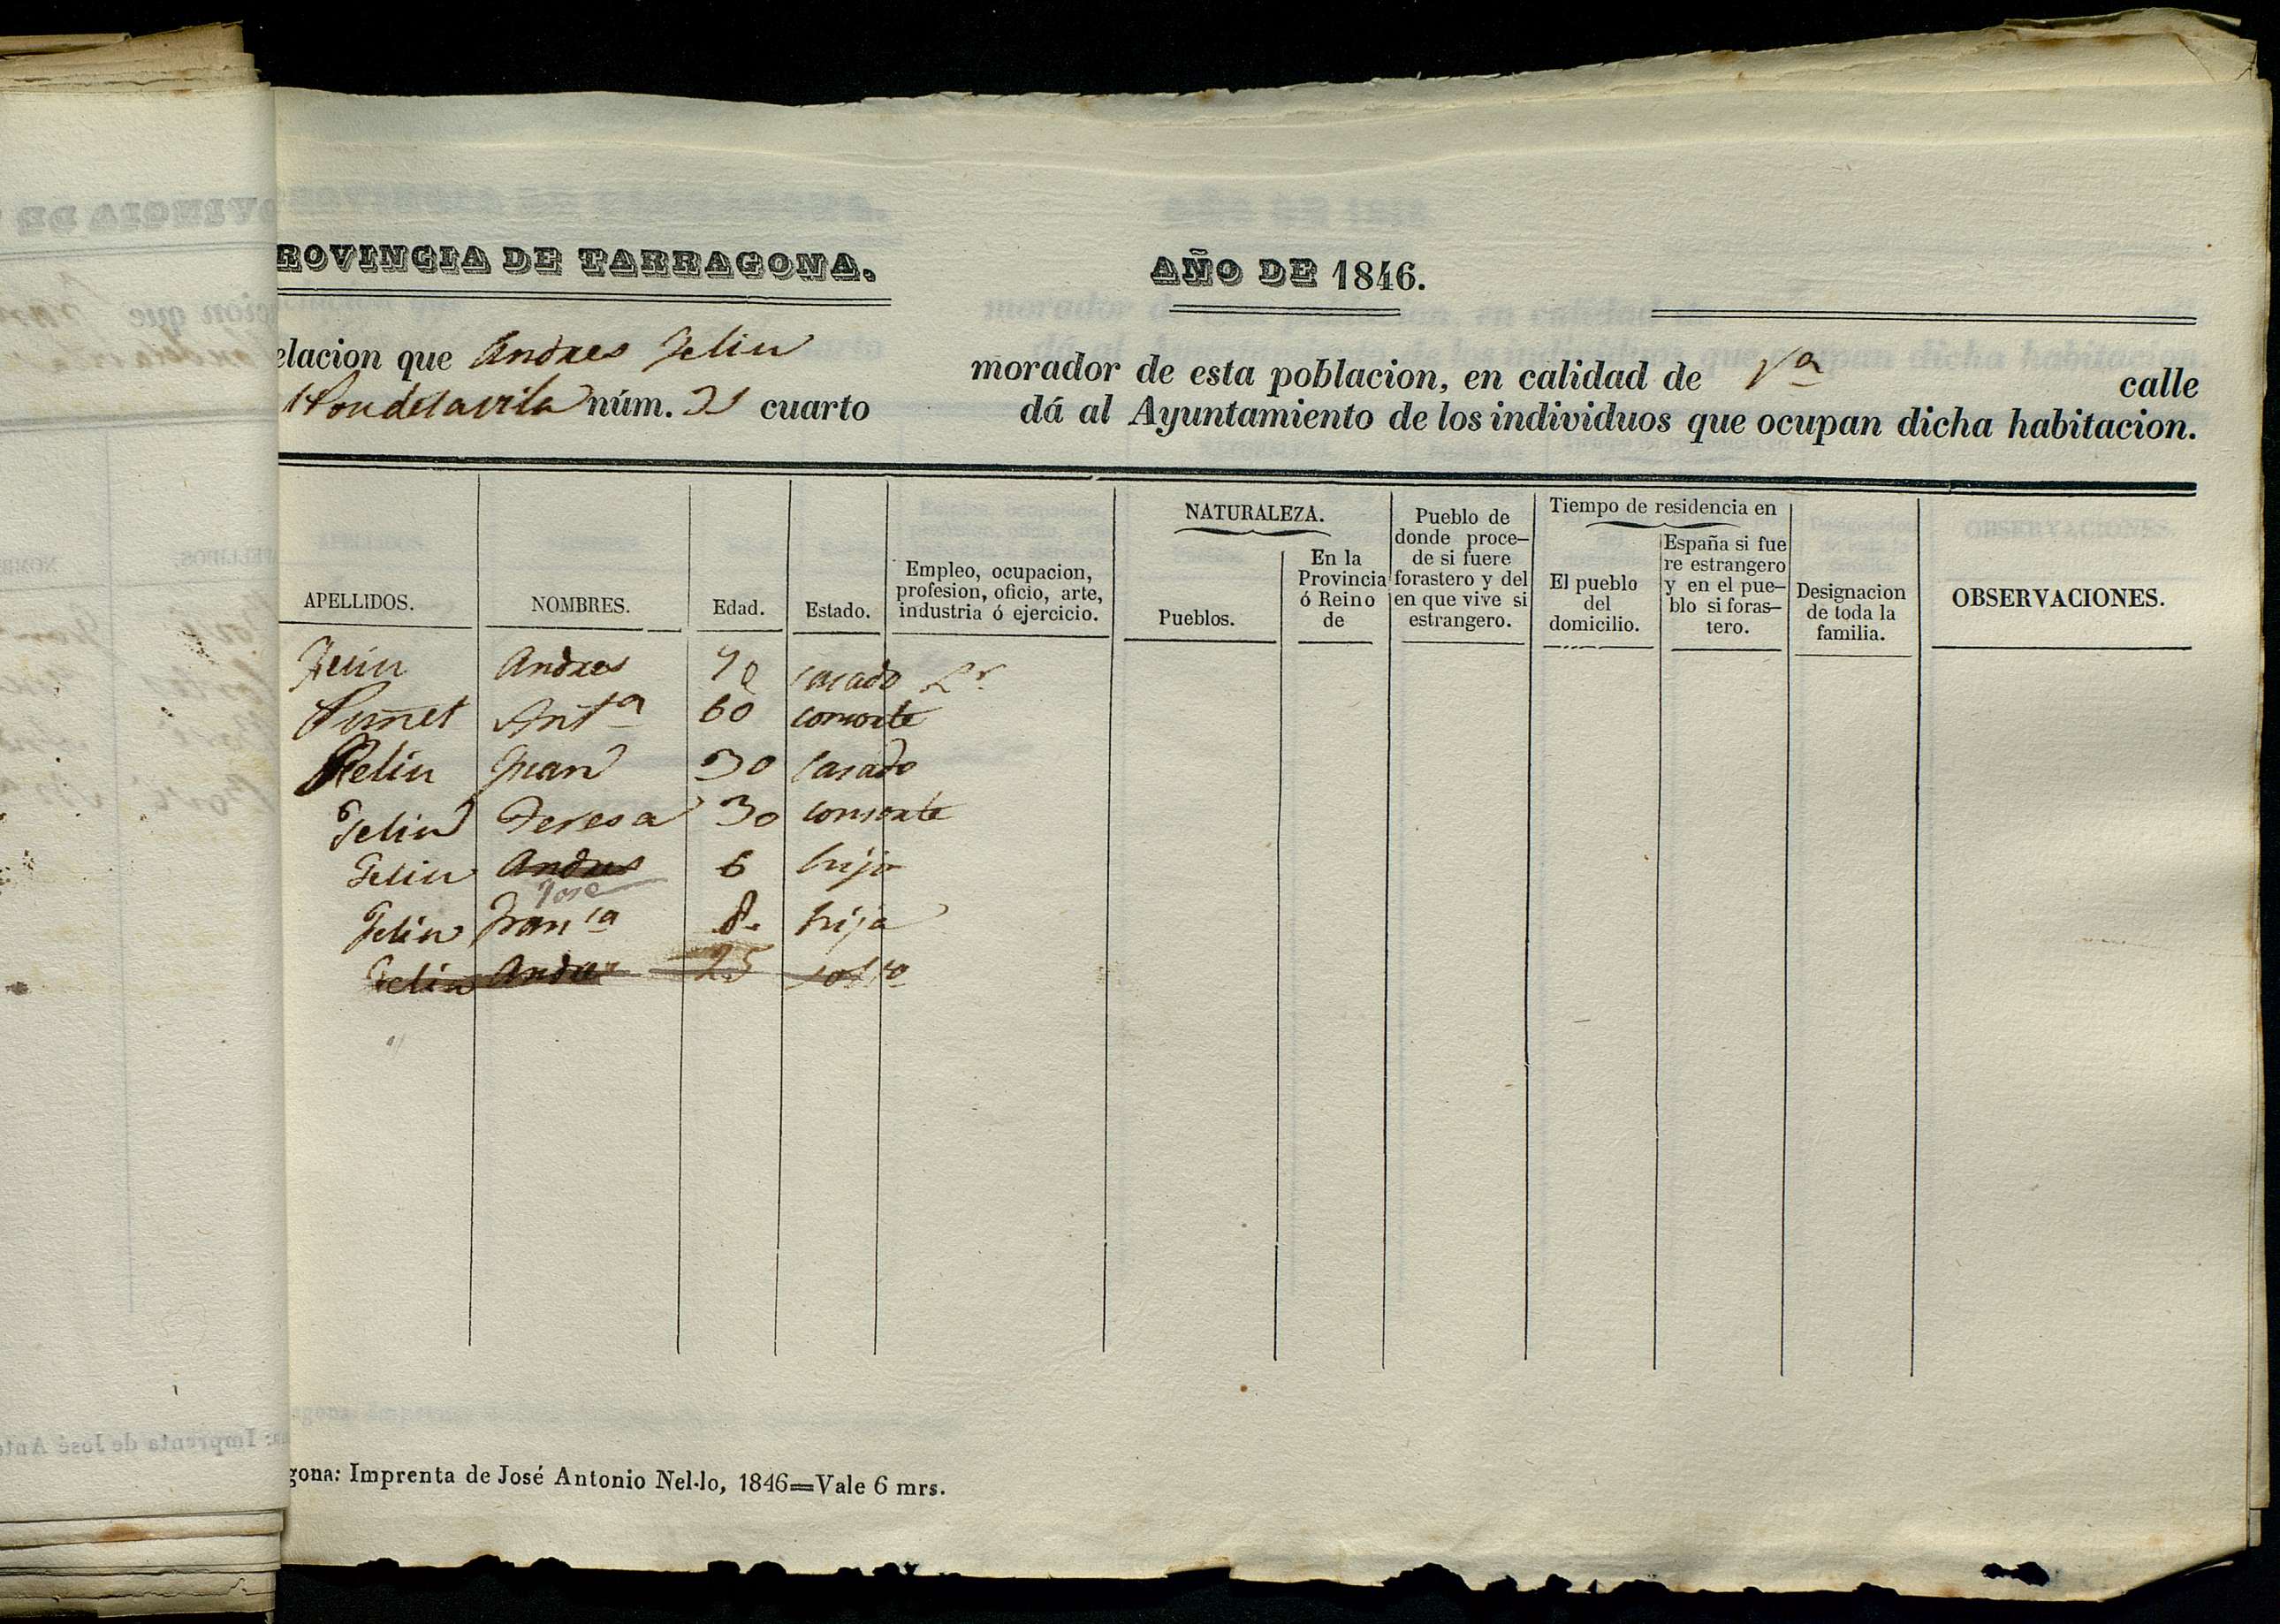 ROVINCIA DE TARRAGONA. AÑO DE 1846.
elacion que Andres Feliu morador de esta poblacion, en calidad de Vª calle
núm. 21 cuarto dá al Ayuntamiento de los individuos que ocupan dicha habitacion.
APELLIDOS. NOMBRES. Edad. Estado. Empleo, ocupacion, profesion, oficio, arte, industria ó ejercicio. NATURALEZA. Pueblos. En la Provincia ó Reino de Pueblo de donde proce- de si fuere forastero y del en que vive si estrangero. Tiempo de residencia en El pueblo del domicilio. España si fue re estrangero y en el pue- blo si foras- tero. Designacion de toda la familia. OBSERVACIONES.
Feliu Andres 70 casado Lr
Antª 60 consorte
Feliu Juan 30 Casado
Feliu Teresa 30 consorte
Feliu Andres 6 hijo
Jose
Feliu Franca 8. hija
Feliu Andres 25 soltro
gona: Imprenta de José Antonio Nel·lo, 1846=Vale 6 mrs.